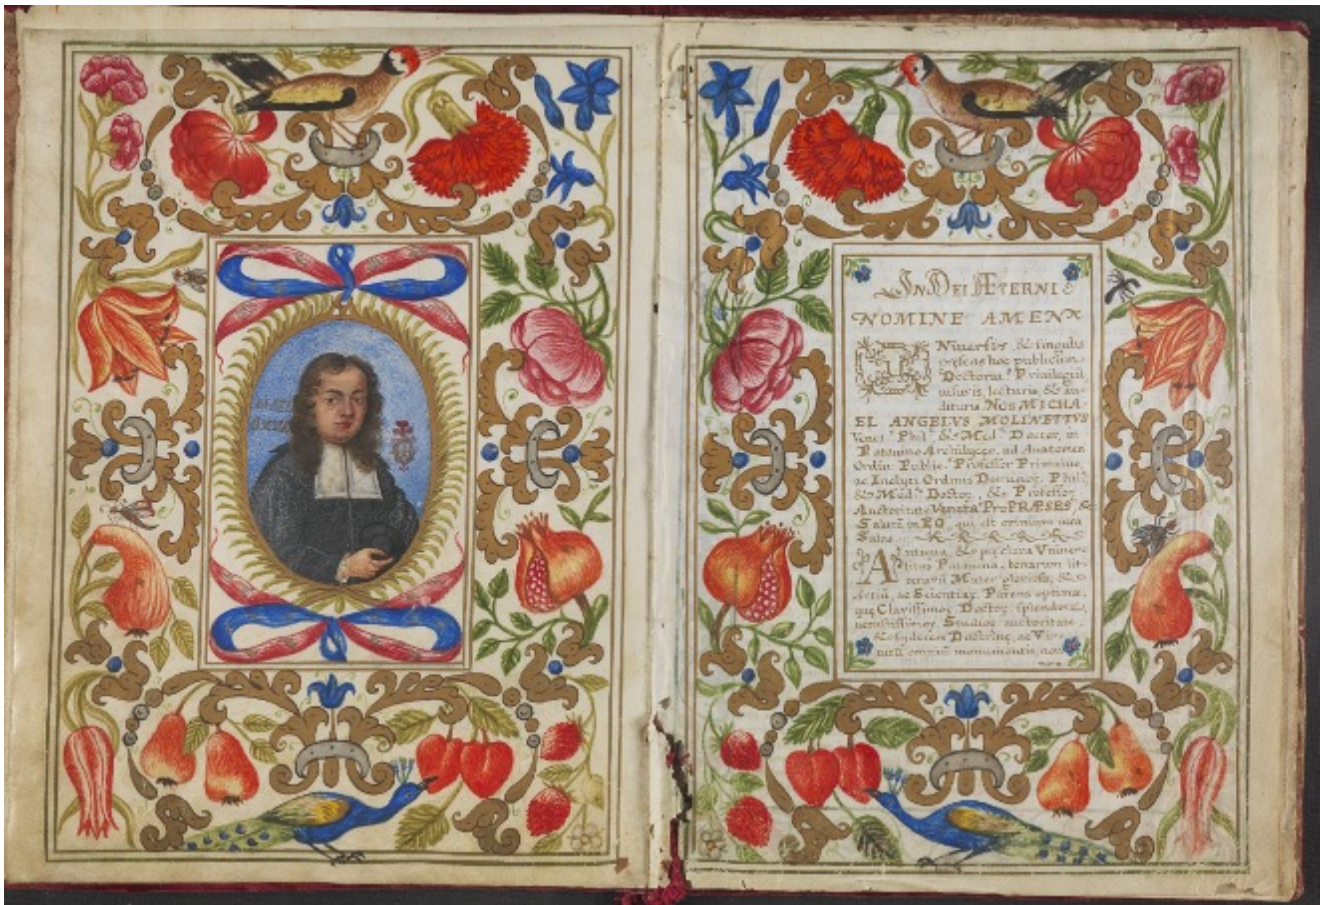 ÆTATIS
IN DEI ÆTERNI
NOMINE AMEN
VNiuersis, & singulis
præsens hoc publicum
Doctorat.s Priuilegiũ
uisuris, lecturis, & au-
dituris. NOS MICHA-
EL ANGELVS MOLINETTVS
Venet.s Phil.æ & Med.æ Doctor, in
Patauino Archilyceo, ad Anatomen
Ordin. Public. Professor Primarius,
ac Inclyti Ordinis Dominor. Phil.æ
& Med.æ Doctor, & Professor,
Auctoritate Veneta ProPRÆSES, &c
Salutẽ in EO, qui est omnium uera
Salus
Antiqua, & præclara Vniuer-
sitas Patauina, bonarum lit-
terarũ Mater gloriosa, &
ac Scientiar. Parens optima,
quæ Clarissimor. Doctor. splendore,
Studior. auctoritate,
Doctrinæ, ac Vir-
omniũ monumentis, non